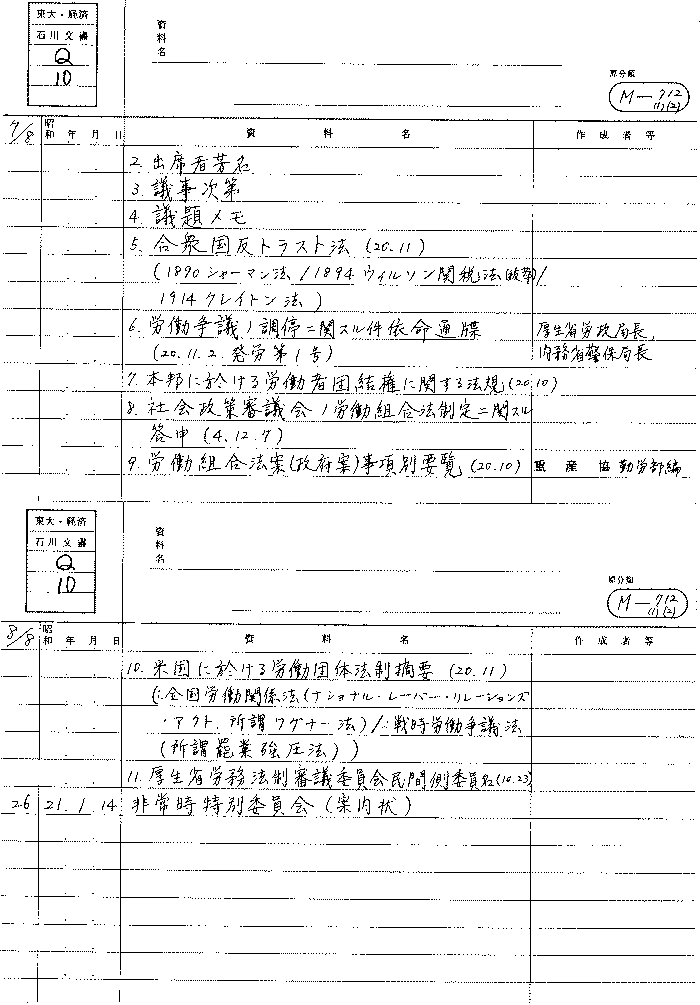 東大・経済
石川文書
Q
10
資料名
原分類
M－712
(1)(2)
7/8 昭和 年 月 日 資料名 作成者等
2. 出席者芳名
3. 議事次第
4. 議題メモ
5. 合衆国反トラスト法 (20.11)
(1890 シャーマン法/1894 ウィルソン関税法(抜萃)/
1914 クレイトン法)
6. 労働争議ノ調停ニ関スル件依命通牒 厚生省労政局長,
(20.11.2. 発労第1号) 内務省警保局長
7. 本邦に於ける労働者団結権に関する法規」(20.10)
8. 社会政策審議会ノ労働組合法制定ニ関スル
答申 (4.12.7)
9. 労働組合法案(政府案)事項別要覧」(20.10) 重産協勤労部編
東大・経済
石川文書
Q
10
資料名
原分類
M－712
(1)(2)
8/8 昭和 年 月 日 資料名 作成者等
10. 米国に於ける労働団体法制摘要 (20.11)
(∴全国労働関係法(ナショナル・レーバー・リレーションズ
・アクト. 所謂ワグナー法)/∴戦時労働争議法
(所謂罷業強圧法))
11. 厚生省労務法制審議委員会民間側委員名(10.23)
26 21. 1. 14 非常時特別委員会 (案内状)